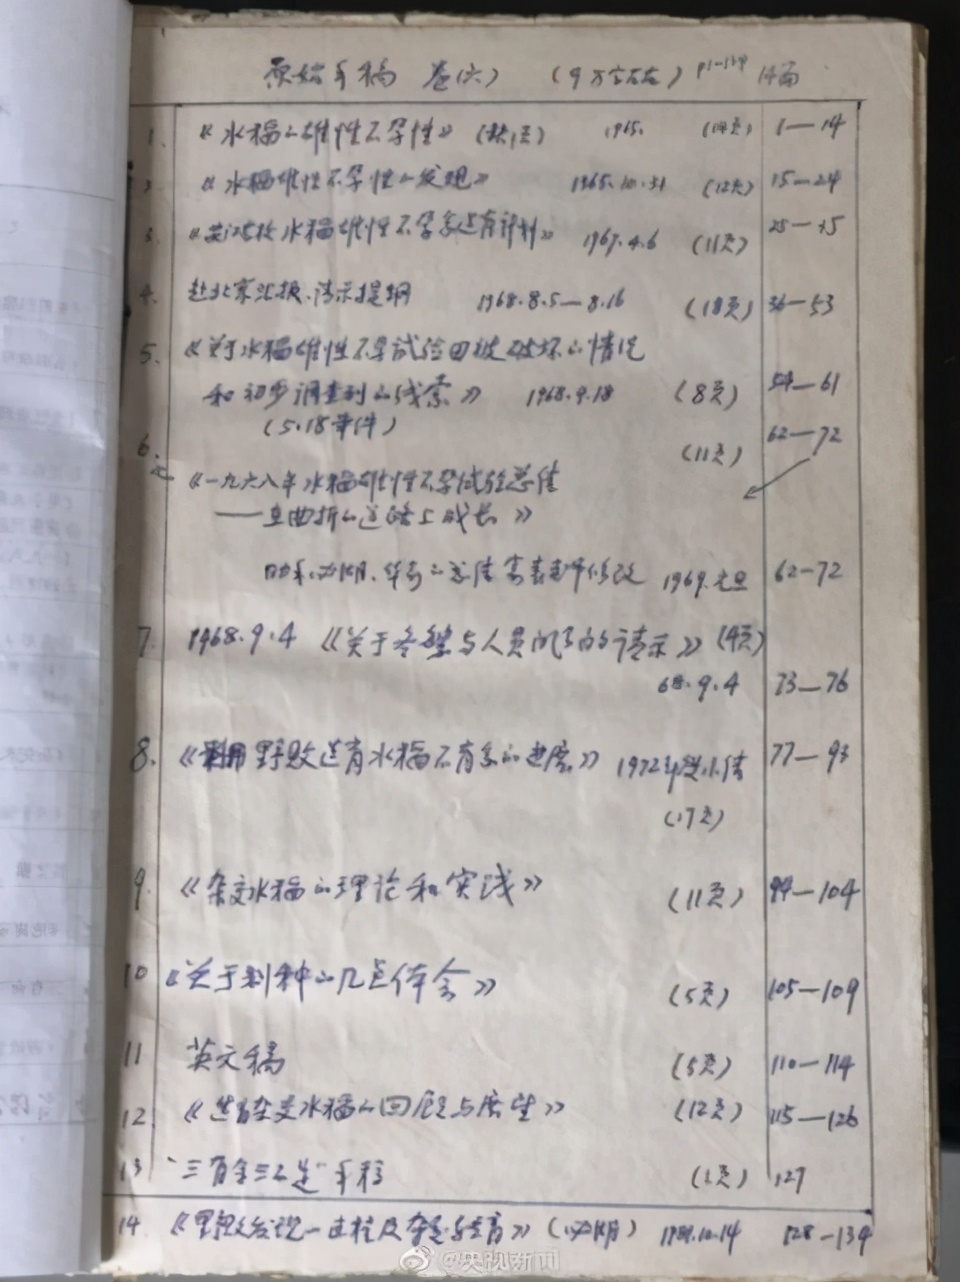 原始手稿 卷(六) (9万字左右) P1—134 14篇
1. 《水稻的雄性不孕性》(缺1页) 1965. (14页) 1—14
2. 《水稻雄性不孕性的发现》 1965.10.31 (12页) 15—24
3. 《安江农校水稻雄性不孕系选育计划》 1967.4.6 (11页) 25—35
4. 赴北京汇报、请示提纲 1968.8.5—8.16 (18页) 36—53
5. 《关于水稻雄性不孕试验田被破坏的情况
和初步调查到的线索》 1968.9.18 (8页) 54—61
(5.18事件)
6. (11页) 62—72
《一九六八年水稻雄性不孕试验总结
——在曲折的道路上成长》
总结 修改 1969.元旦 62—72
7. 1968.9.4 《关于 与人员 的请示》(4页)
68.9.4 73—76
8. 《利用野败选育水稻不育系的进展》 1972年 (17页) 77—93
9. 《杂交水稻的理论和实践》 (11页) 94—104
10 《关于制种的几点体会》 (5页) 105—109
11 英文稿 (5页) 110—114
12. 《选育杂交水稻的回顾与展望》 (12页) 115—126
13 "三 " 手稿 (1页) 127
14. 《野败发现 过程及 》 10.14 128—134
@央视新闻